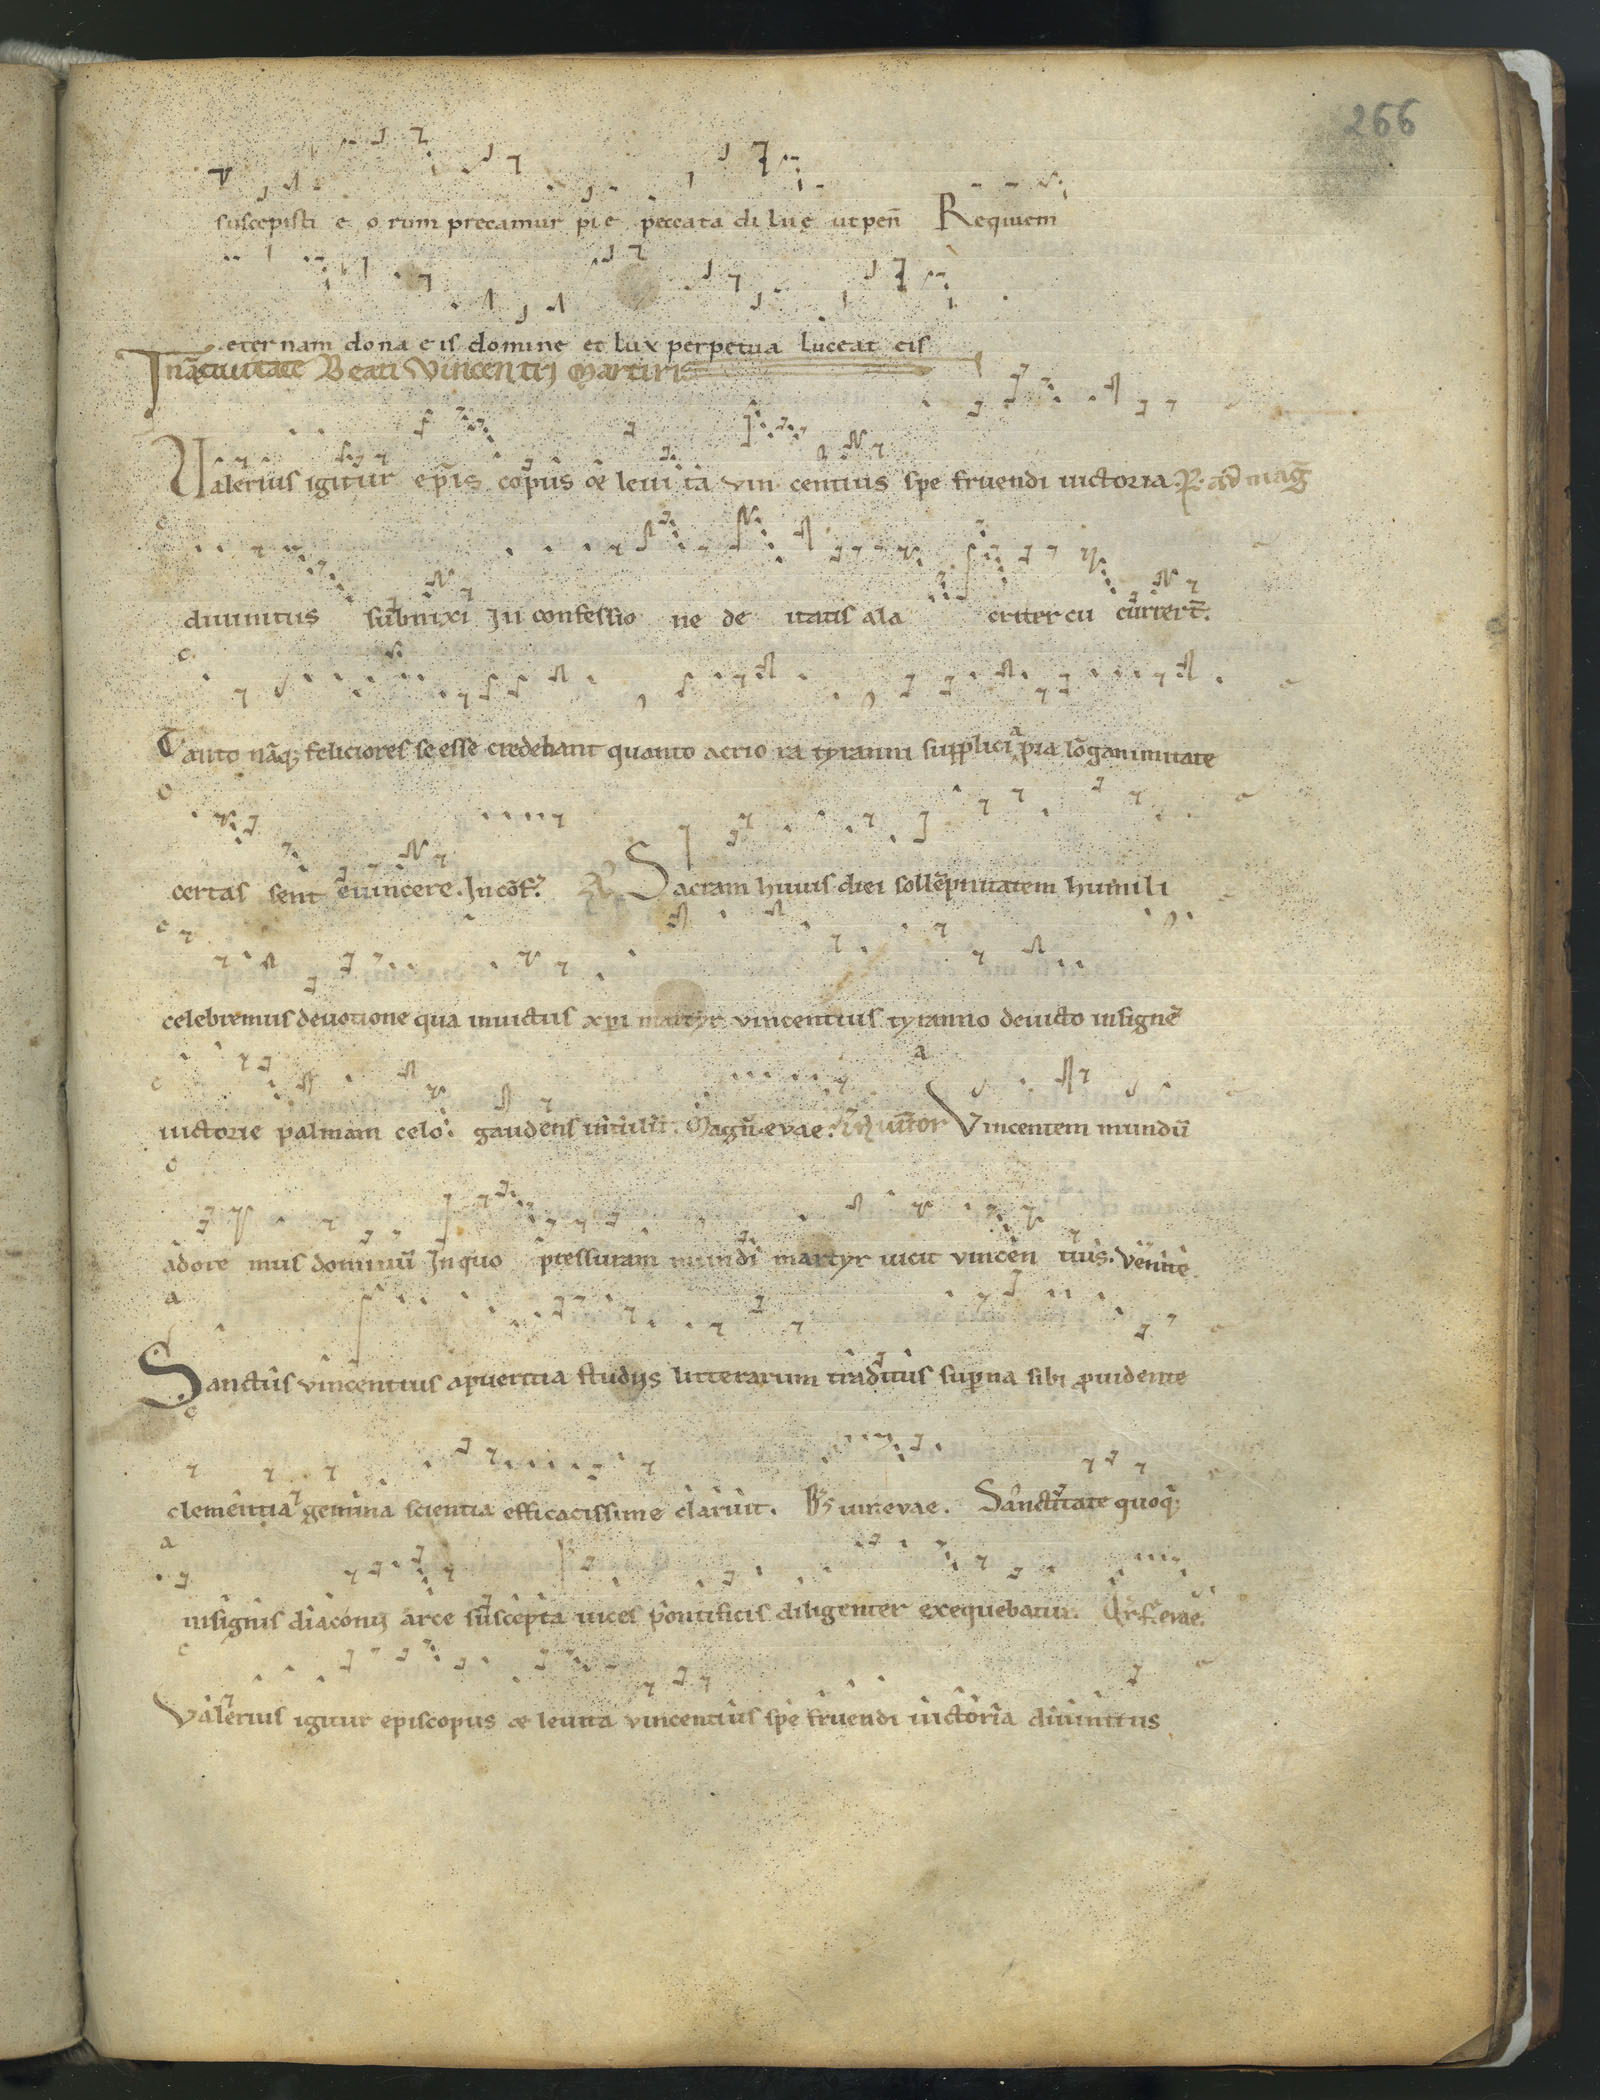 266
suscepisti e o rum precamur pie peccata di lue ut peñ Requiem
eter nam dona eis domine et lux perpetua luceat eis
In natiuitate Beati Vincentij Martiris
Ualerius igitur ep̃is copus & leui ta vin centius spe fruendi uictoria. R. ad mag̃
diuinitus subnixi In confessio ne de itatis ala criter cu currer̃t.
Tanto nãq; feliciores se esse credebant quanto acrio ra tyranni supplici a pia lõganimitate
certas sent euincere. In cõf. A Sacram huius diei sollẽpnitatem humili
celebremus deuotione qua inuictus xp̃i martyr vincentius tyranno deuicto insignẽ
uictorie palmam celo. gaudens intulit. Magñ. evae. Vincentem mundũ
adore mus dominũ In quo pressuram mundi martyr uicit vincen tius. Venite
Sanctus vincentius a pueritia studijs litterarum traditus supna sibi ꝓuidente
clementia gemina scientia efficacissime claruit. evae. Sanctitate quoq;
insignis diaconij arce suscepta uices pontificis diligenter exequebatur. evae.
Valerius igitur episcopus & leuita vincentius spe fruendi uictoria diuinitus